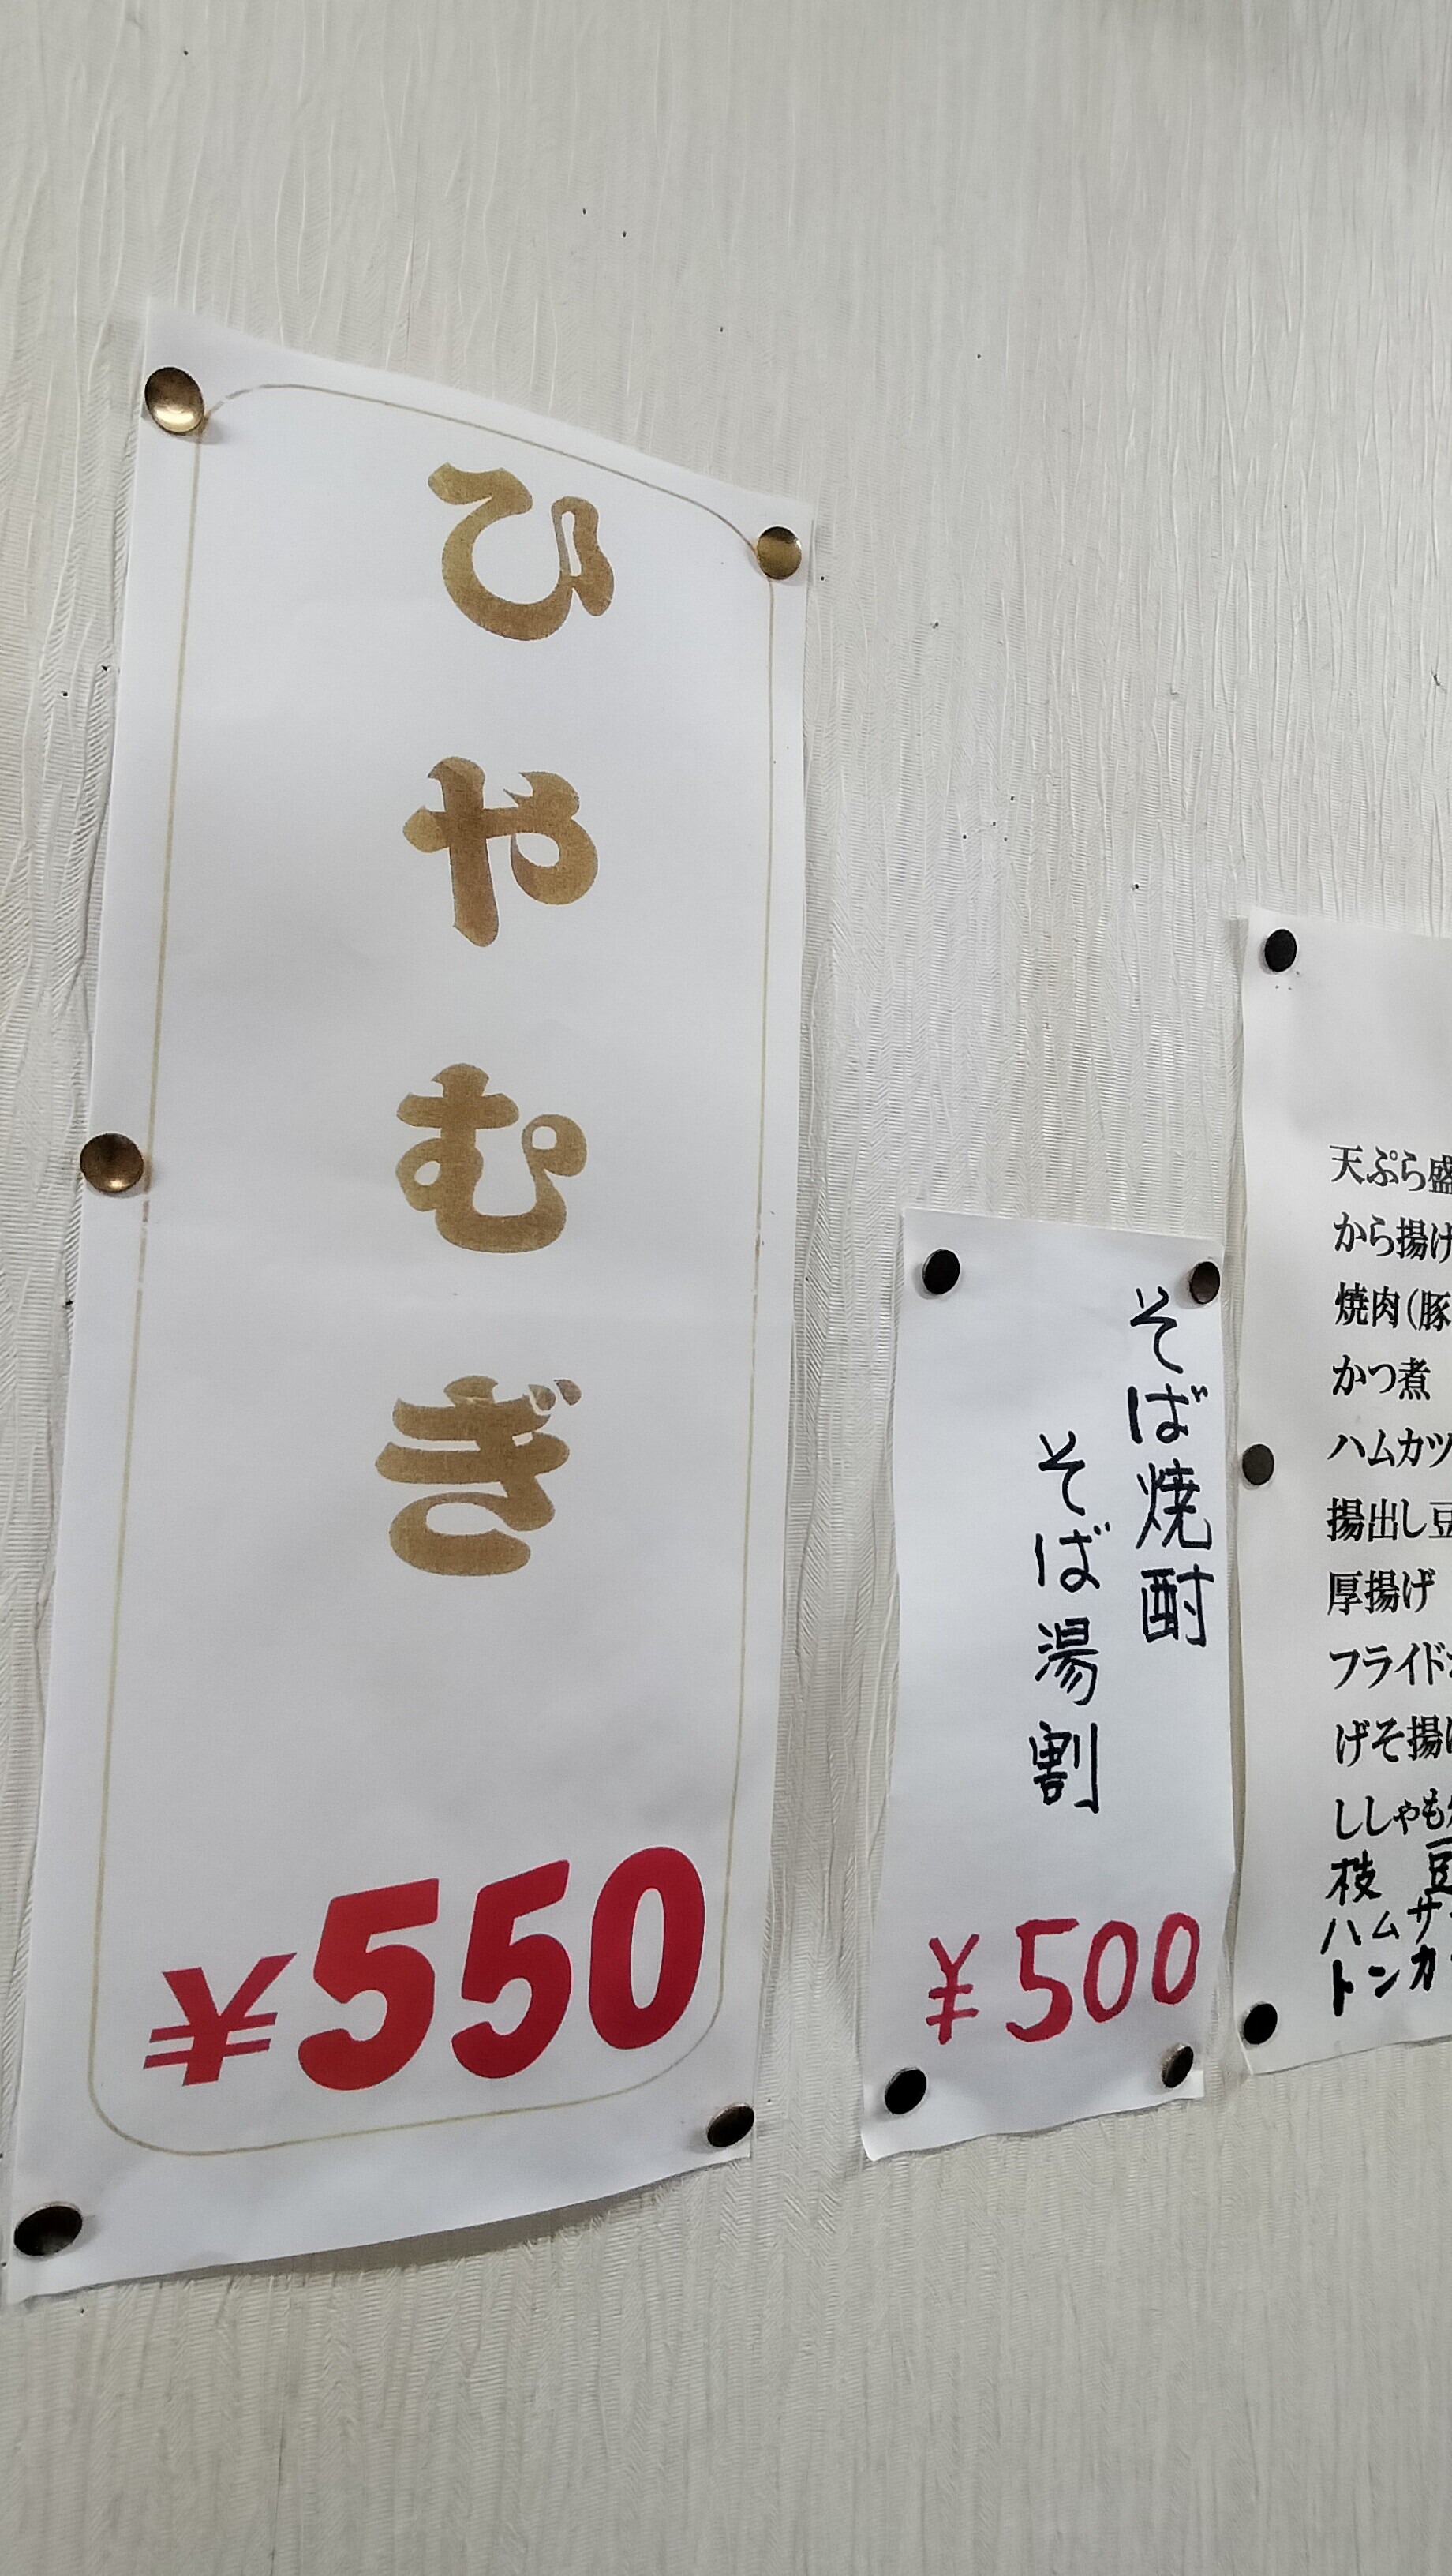 ひやむぎ
¥550
そば焼酎
そば湯割
¥500
天ぷら盛
から揚げ
焼肉(豚
かつ煮
ハムカツ
揚出し豆
厚揚げ
フライド
げそ揚げ
ししゃも
枝豆
ハムサ
トンカ